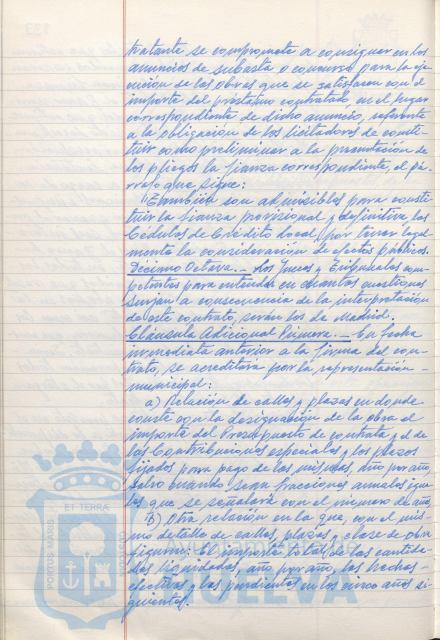 tratante se compromete a consignar en los
anuncios de subasta o concurso para la eje-
cución de las obras que se satisfacen con el
importe del préstamo contratado, en el lugar
correspondiente de dicho anuncio, referente
a la obligación de los licitadores de consti-
tuir como preliminar a la presentación de
los pliegos la fianza correspondiente, el pá-
rrafo que sigue:
"También son admisibles para consti-
tuir la fianza provisional y definitiva, las
Cédulas de Crédito Local, por tener legal-
mente la consideración de efectos públicos.
Décimo Octava.- Los Jueces y Tribunales com-
petentes para entender en cuantas cuestiones
surjan a consecuencia de la interpretación
de este contrato, serán los de Madrid.
Cláusula Adicional Primera.- En fecha
inmediata anterior a la firma del con-
trato, se acreditará por la representación
municipal:
a) Relación de calles y plazas en donde
conste con la designación de la obra el
importe del Presupuesto de contrata y el de
las Contribuciones especiales y los plazos
fijados para pago de las mismas, año por año,
salvo cuando sean fracciones anuales igua-
les que se señalará con el número de años
b) Otra relación en la que, con el mis-
mo detalle de calles, plazas y clase de obra
figuren: El importe total de las cantida-
des liquidadas, año por año, las hechas
efectivas y las pendientes en los cinco años si-
guientes.
PORTUS MARIS
ET TERRÆ
CUSTODIA
HUELVA